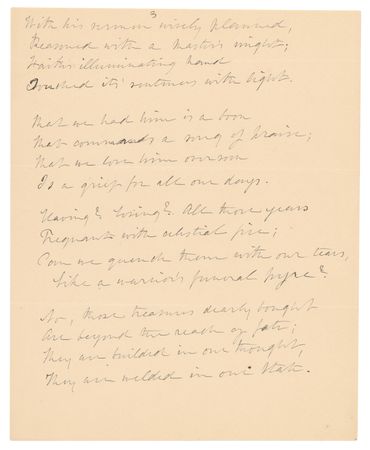 3
With his sermon wisely planned,
Reasoned with a Master's might;
Faith's illuminating hand
Touched its' sentences with light.

That we had him is a boon
That commands a song of praise;
That we lose him oversoon
Is a grief for all our days.

Having? Losing? All those years
Frequant with celestial fire;
Can we quench them with our tears,
Like a warrior's funeral pyre?

No, those treasures dearly bought
Are beyond the reach of fate;
They are builded in our thought,
They are welded in our State.